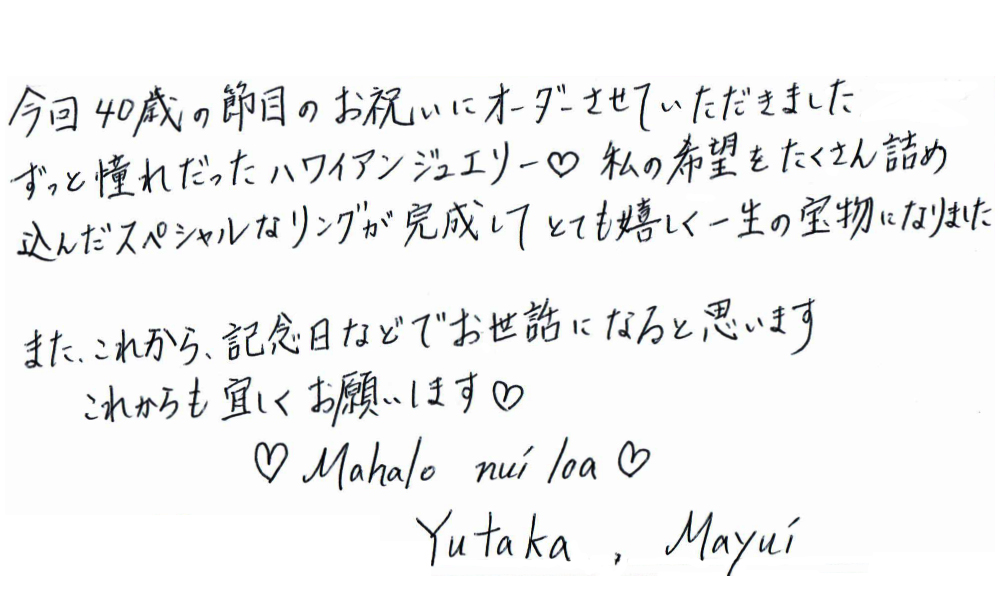 今回40歳の節目のお祝いにオーダーさせていただきました
ずっと憧れだったハワイアンジュエリー♡ 私の希望をたくさん詰め
込んだスペシャルなリングが完成してとても嬉しく一生の宝物になりました
また、これから、記念日などでお世話になると思います
これからも宜しくお願いします♡
♡ Mahalo nui loa ♡
Yutaka , Mayui